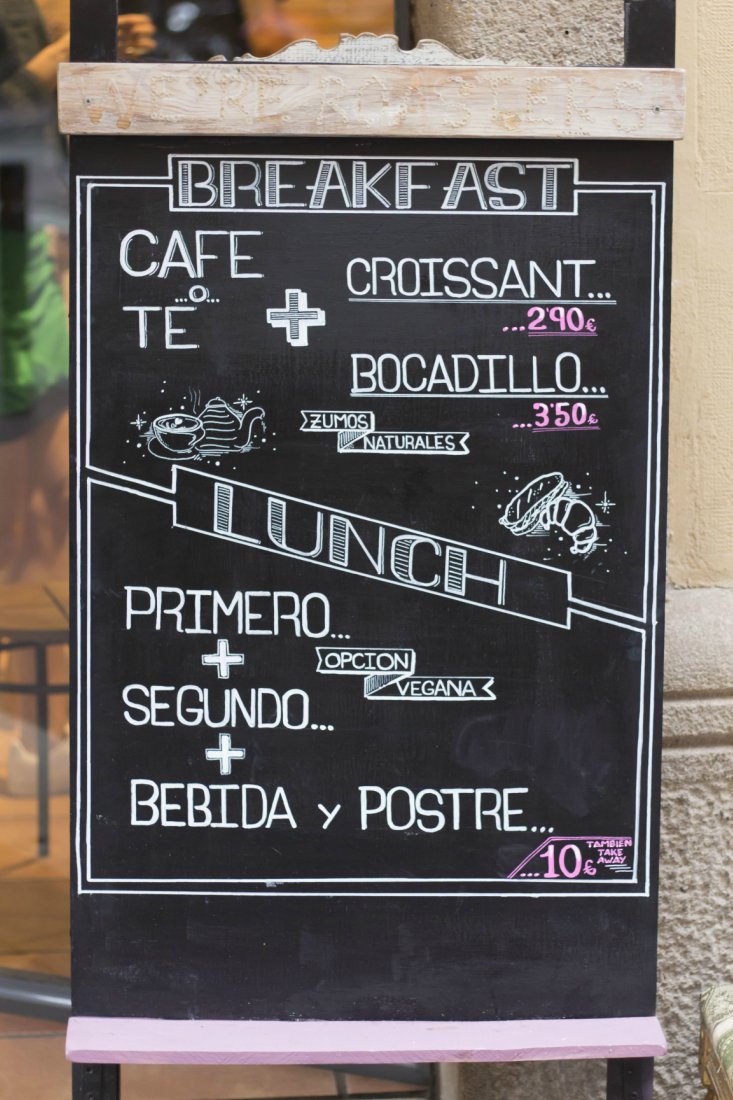 WE'RE ROASTERS
BREAKFAST
CAFE
...O...
TÉ
+
CROISSANT...
...2'90€
BOCADILLO...
...3'50€
ZUMOS
NATURALES
LUNCH
PRIMERO...
+
OPCION
VEGANA
SEGUNDO...
+
BEBIDA Y POSTRE...
...10€
TAMBIEN
TAKE
AWAY